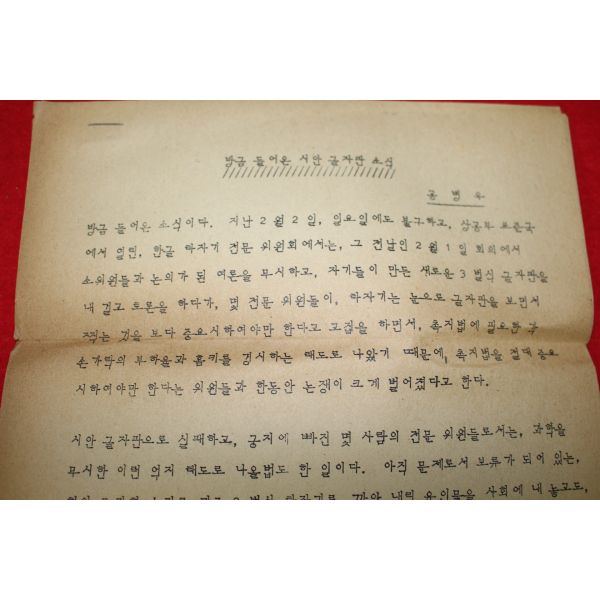 방금 들어온 시안 글자판 소식
공 병 우
방금 들어온 소식이다. 지난 2 월 2 일, 일요일에도 불구하고, 상공부 표준국
에서 열린, 한글 타자기 전문 위원회에서는, 그 전날인 2 월 1 일 회의에서
소위원들과 논의가 된 여론을 무시하고, 자기들이 만든 새로운 3 벌식 글자판을
내 걸고 토론을 하다가, 몇 전문 위원들이, 타자기는 눈으로 글자판을 보면서
찍는 것을 보다 중요시하여야만 한다고 고집을 하면서, 촉지법에 필요한
손가락의 부하율과 홈키를 경시하는 태도로 나왔기 때문에, 촉지법을 절대 중요
시하여야만 한다는 위원들과 한동안 논쟁이 크게 벌어졌다고 한다.
시안 글자판으로 실패하고, 궁지에 빠진 몇 사람의 전문 위원들로서는, 과학을
무시한 이런 억지 태도로 나올법도 한 일이다. 아직 문제로서 보류가 되어 있는,
타자기로 까만 내력 유인물을 사회에 내 놓고도,